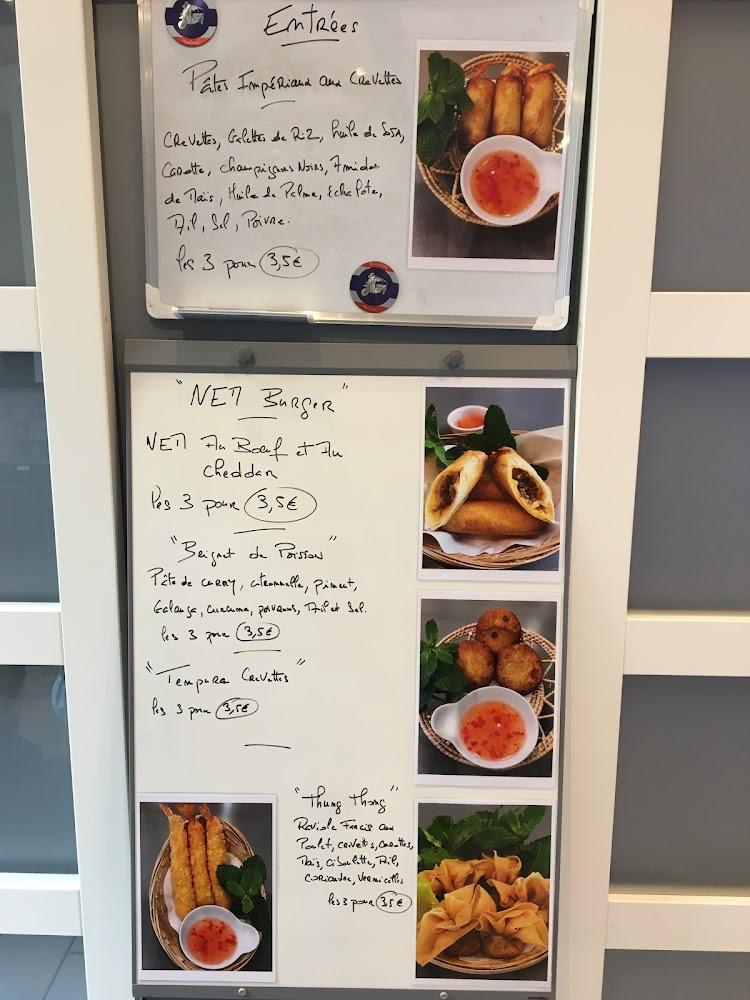 Entrées
Pâtés Impériaux aux Crevettes
Crevettes, Galettes de Riz, huile de SOJA,
Carotte, champignons Noirs, Amidon
de Maïs, Huile de Palme, Echalote,
Ail, Sel, Poivre.
les 3 pour 3,5€
"NEM Burger"
NEM Au Bœuf et Au
Cheddar
les 3 pour 3,5€
"Beignet de Poisson"
Pâte de curry, citronnelle, piment,
Galanga, curcuma, poivrons, Ail et Sel.
les 3 pour 3,5€
"Tempura Crevettes"
les 3 pour 3,5€
"Thung Thong"
Raviole Farcis aux
Poulet, crevettes, carottes,
Maïs, ciboulette, Ail,
coriandre, vermicelles
les 3 pour 3,5€